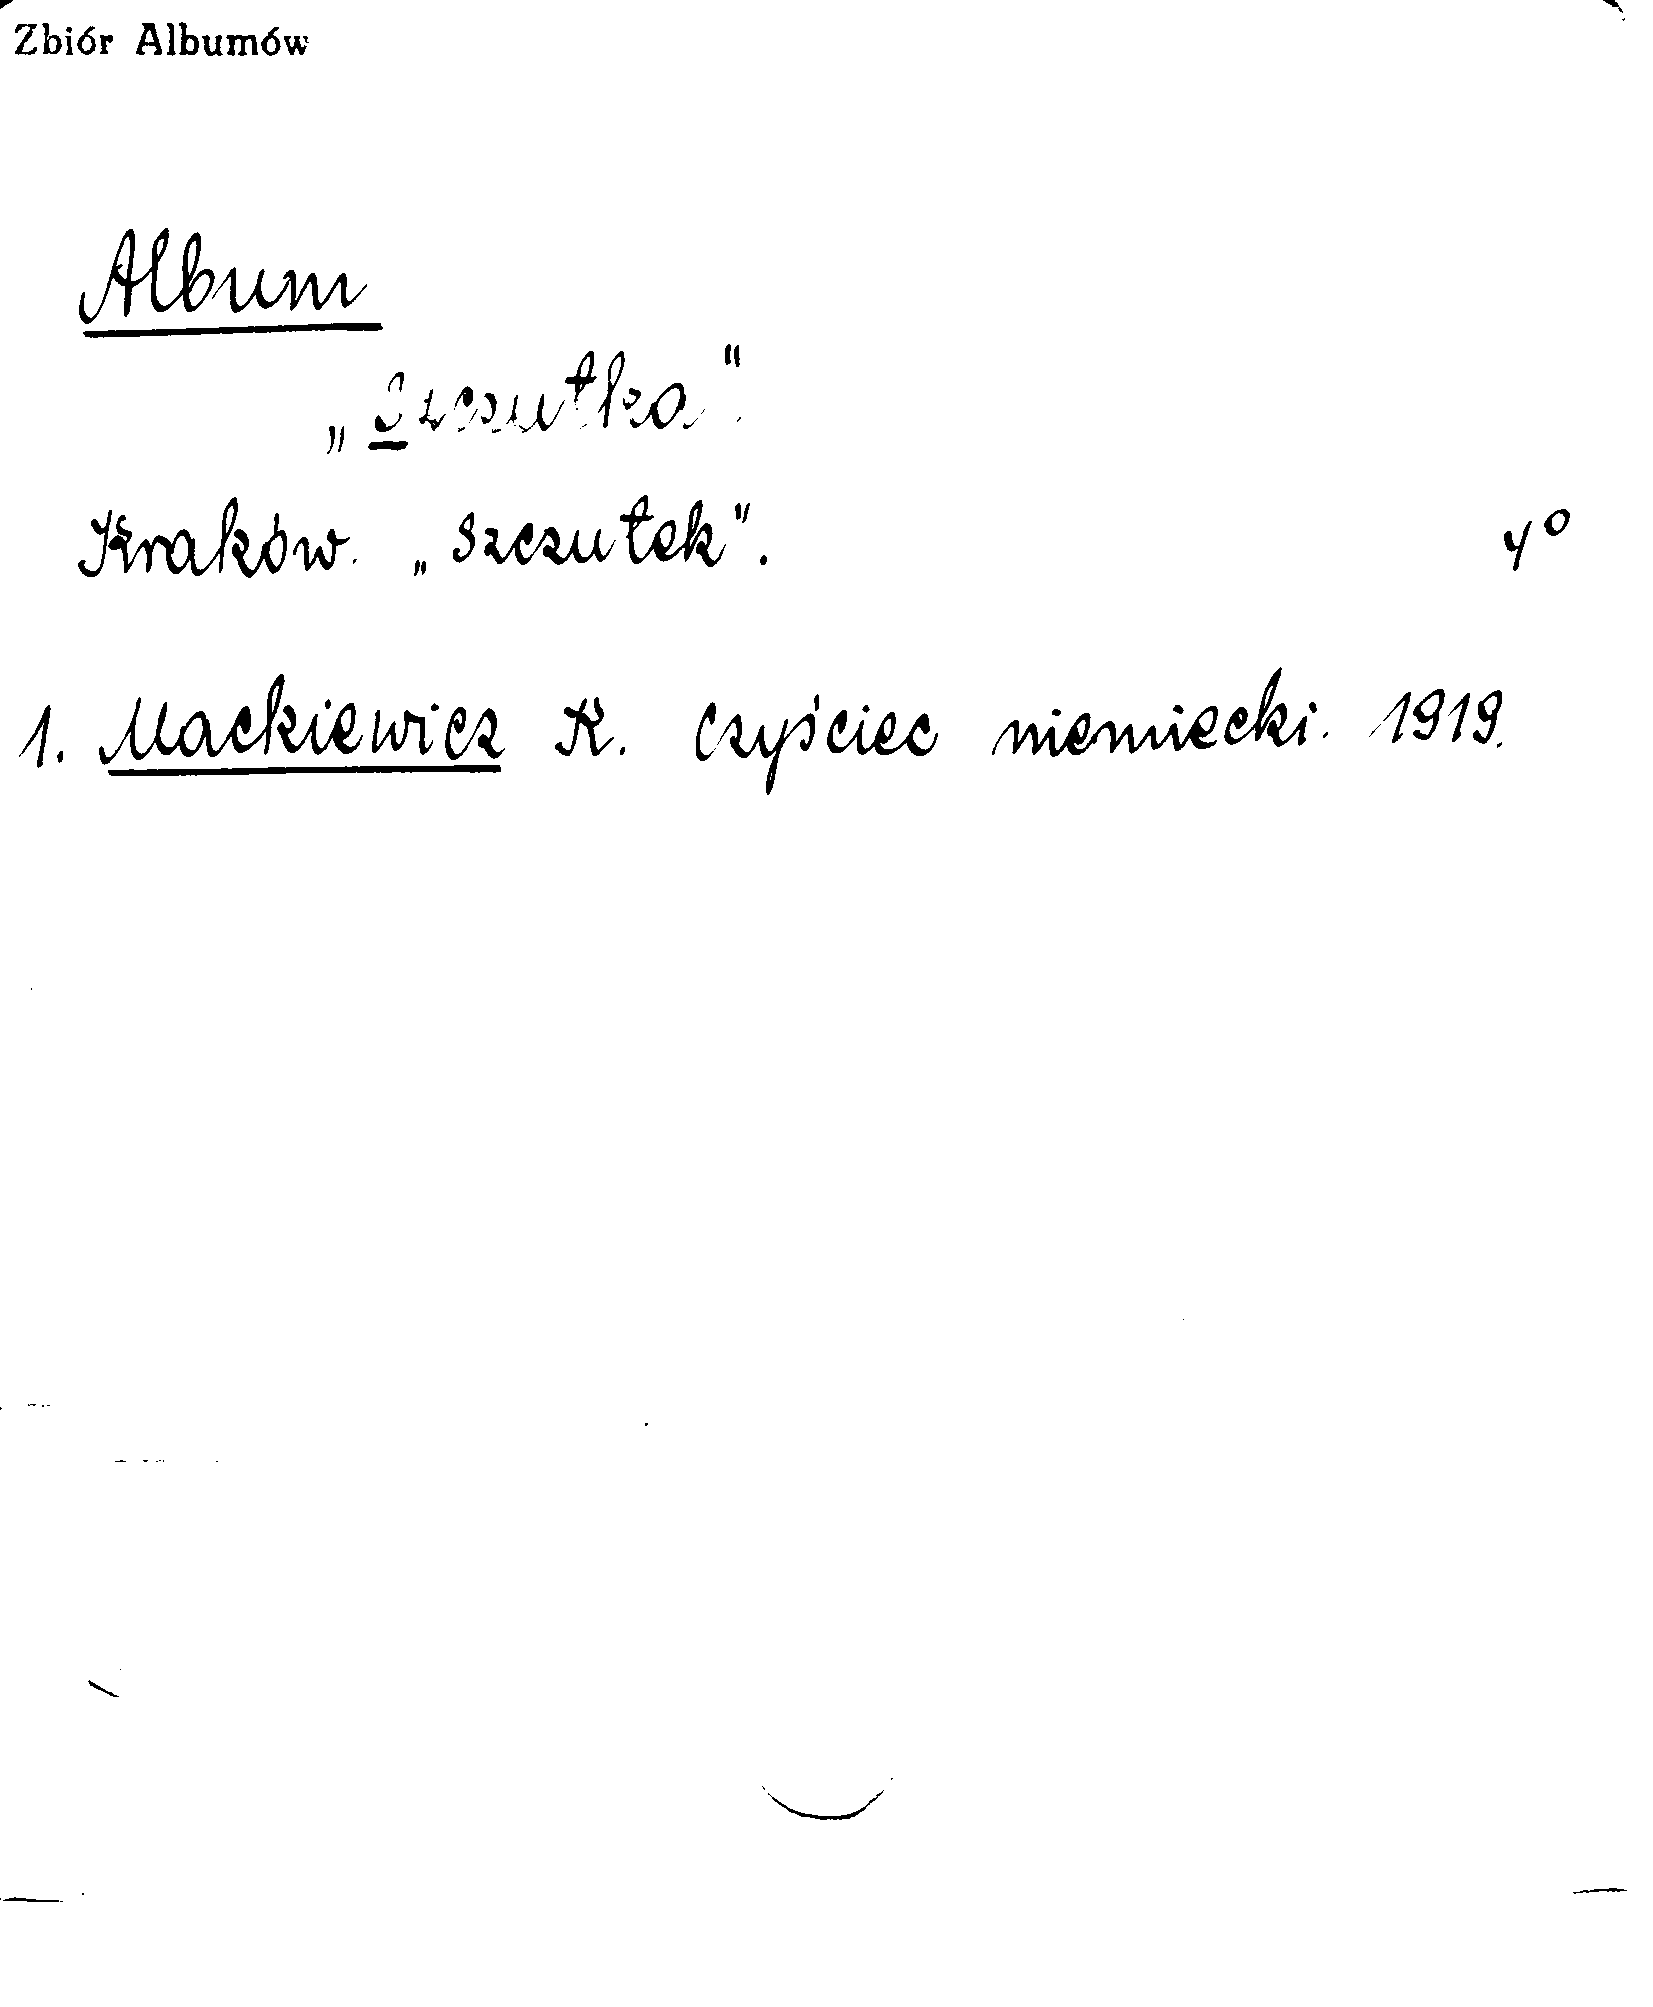 Zbiór Albumów
Album
„Szczutka".
Kraków. „Szczutek".
4°
1. Mackiewicz K. Czyściec niemiecki. 1919.